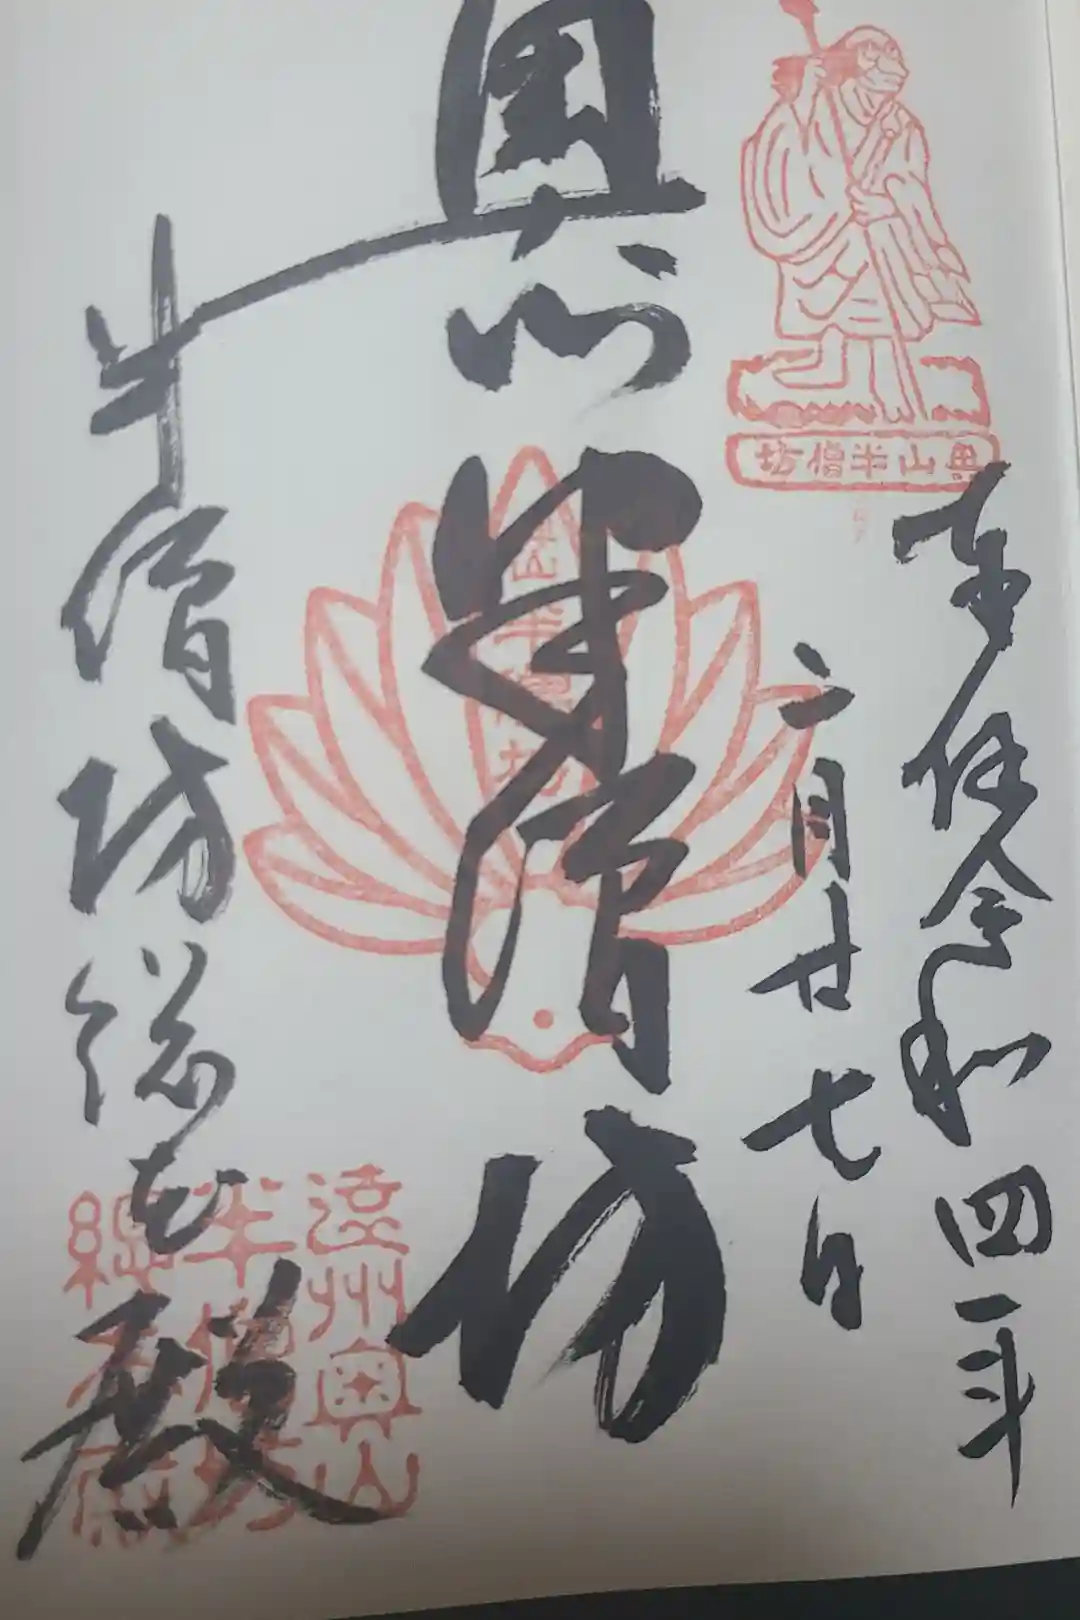 奥山半僧坊
奉拝令和四年
二月廿七日
奥山
半僧坊
半僧坊総本殿
奥山半僧坊
遠州奥山
半僧坊
總本殿